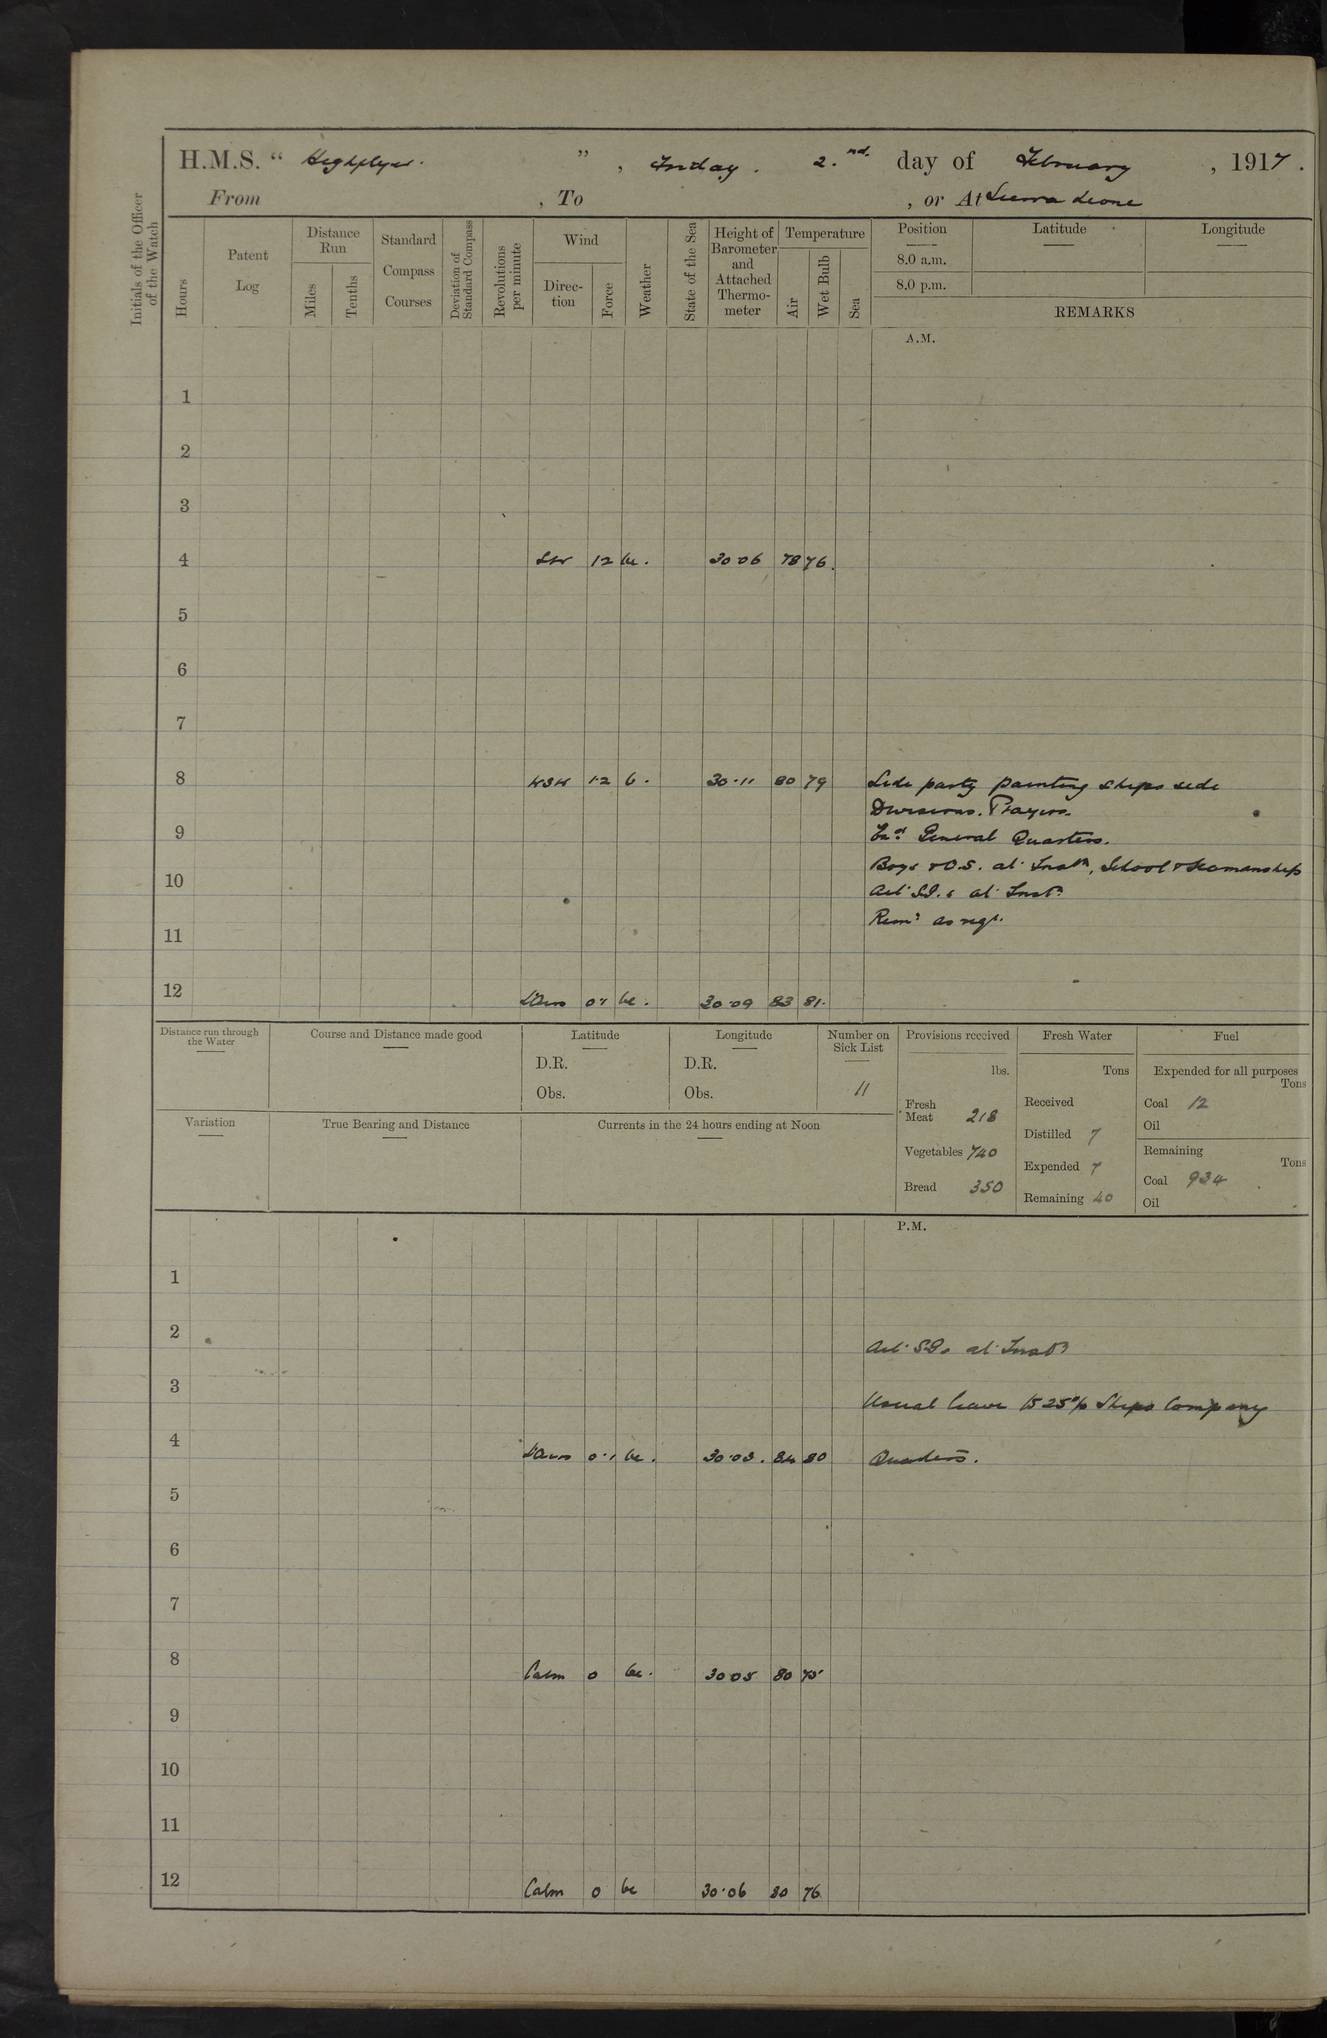 H.M.S. “ Highflyer. ” , Friday . 2.nd. day of February , 1917 .
From , To , or At Sierra Leone
Initials of the Officer of the Watch
Hours
Patent Log
Distance Run
Miles
Tenths
Standard Compass Courses
Deviation of Standard Compass
Revolutions per minute
Wind
Direc-tion
Force
Weather
State of the Sea
Height of Barometer and Attached Thermo-meter
Temperature
Air
Wet Bulb
Sea
Position
8.0 a.m.
8.0 p.m.
Latitude
Longitude
REMARKS
A.M.
1
2
3
4 SW 1·2 bc. 30·06 78 76.
5
6
7
8 WSW 1·2 b. 30·11 80 79 Side party painting ships side
Divisions. Prayers.
9 Exd General Quarters.
Boys & O.S. at Instn, School & Seamanship
10 at Instn
Remr as reqt.
11
12 L'Airs 0·1 bc. 30·09 83 81.
Distance run through the Water
Course and Distance made good
Latitude
D.R.
Obs.
Longitude
D.R.
Obs.
Number on Sick List
11
Provisions received
lbs.
Fresh Meat 218
Vegetables 740
Bread 350
Fresh Water
Tons
Received
Distilled 7
Expended 7
Remaining 40
Fuel
Expended for all purposes
Tons
Coal 12
Oil
Remaining
Tons
Coal 934
Oil
Variation
True Bearing and Distance
Currents in the 24 hours ending at Noon
P.M.
1
2
at Instn
3
Usual leave to 25% Ships Company
4 L'Airs 0·1 bc. 30·03. 84 80 Quarters.
5
6
7
8 Calm 0 bc. 30·05 80 75
9
10
11
12 Calm 0 bc 30·06 80 76